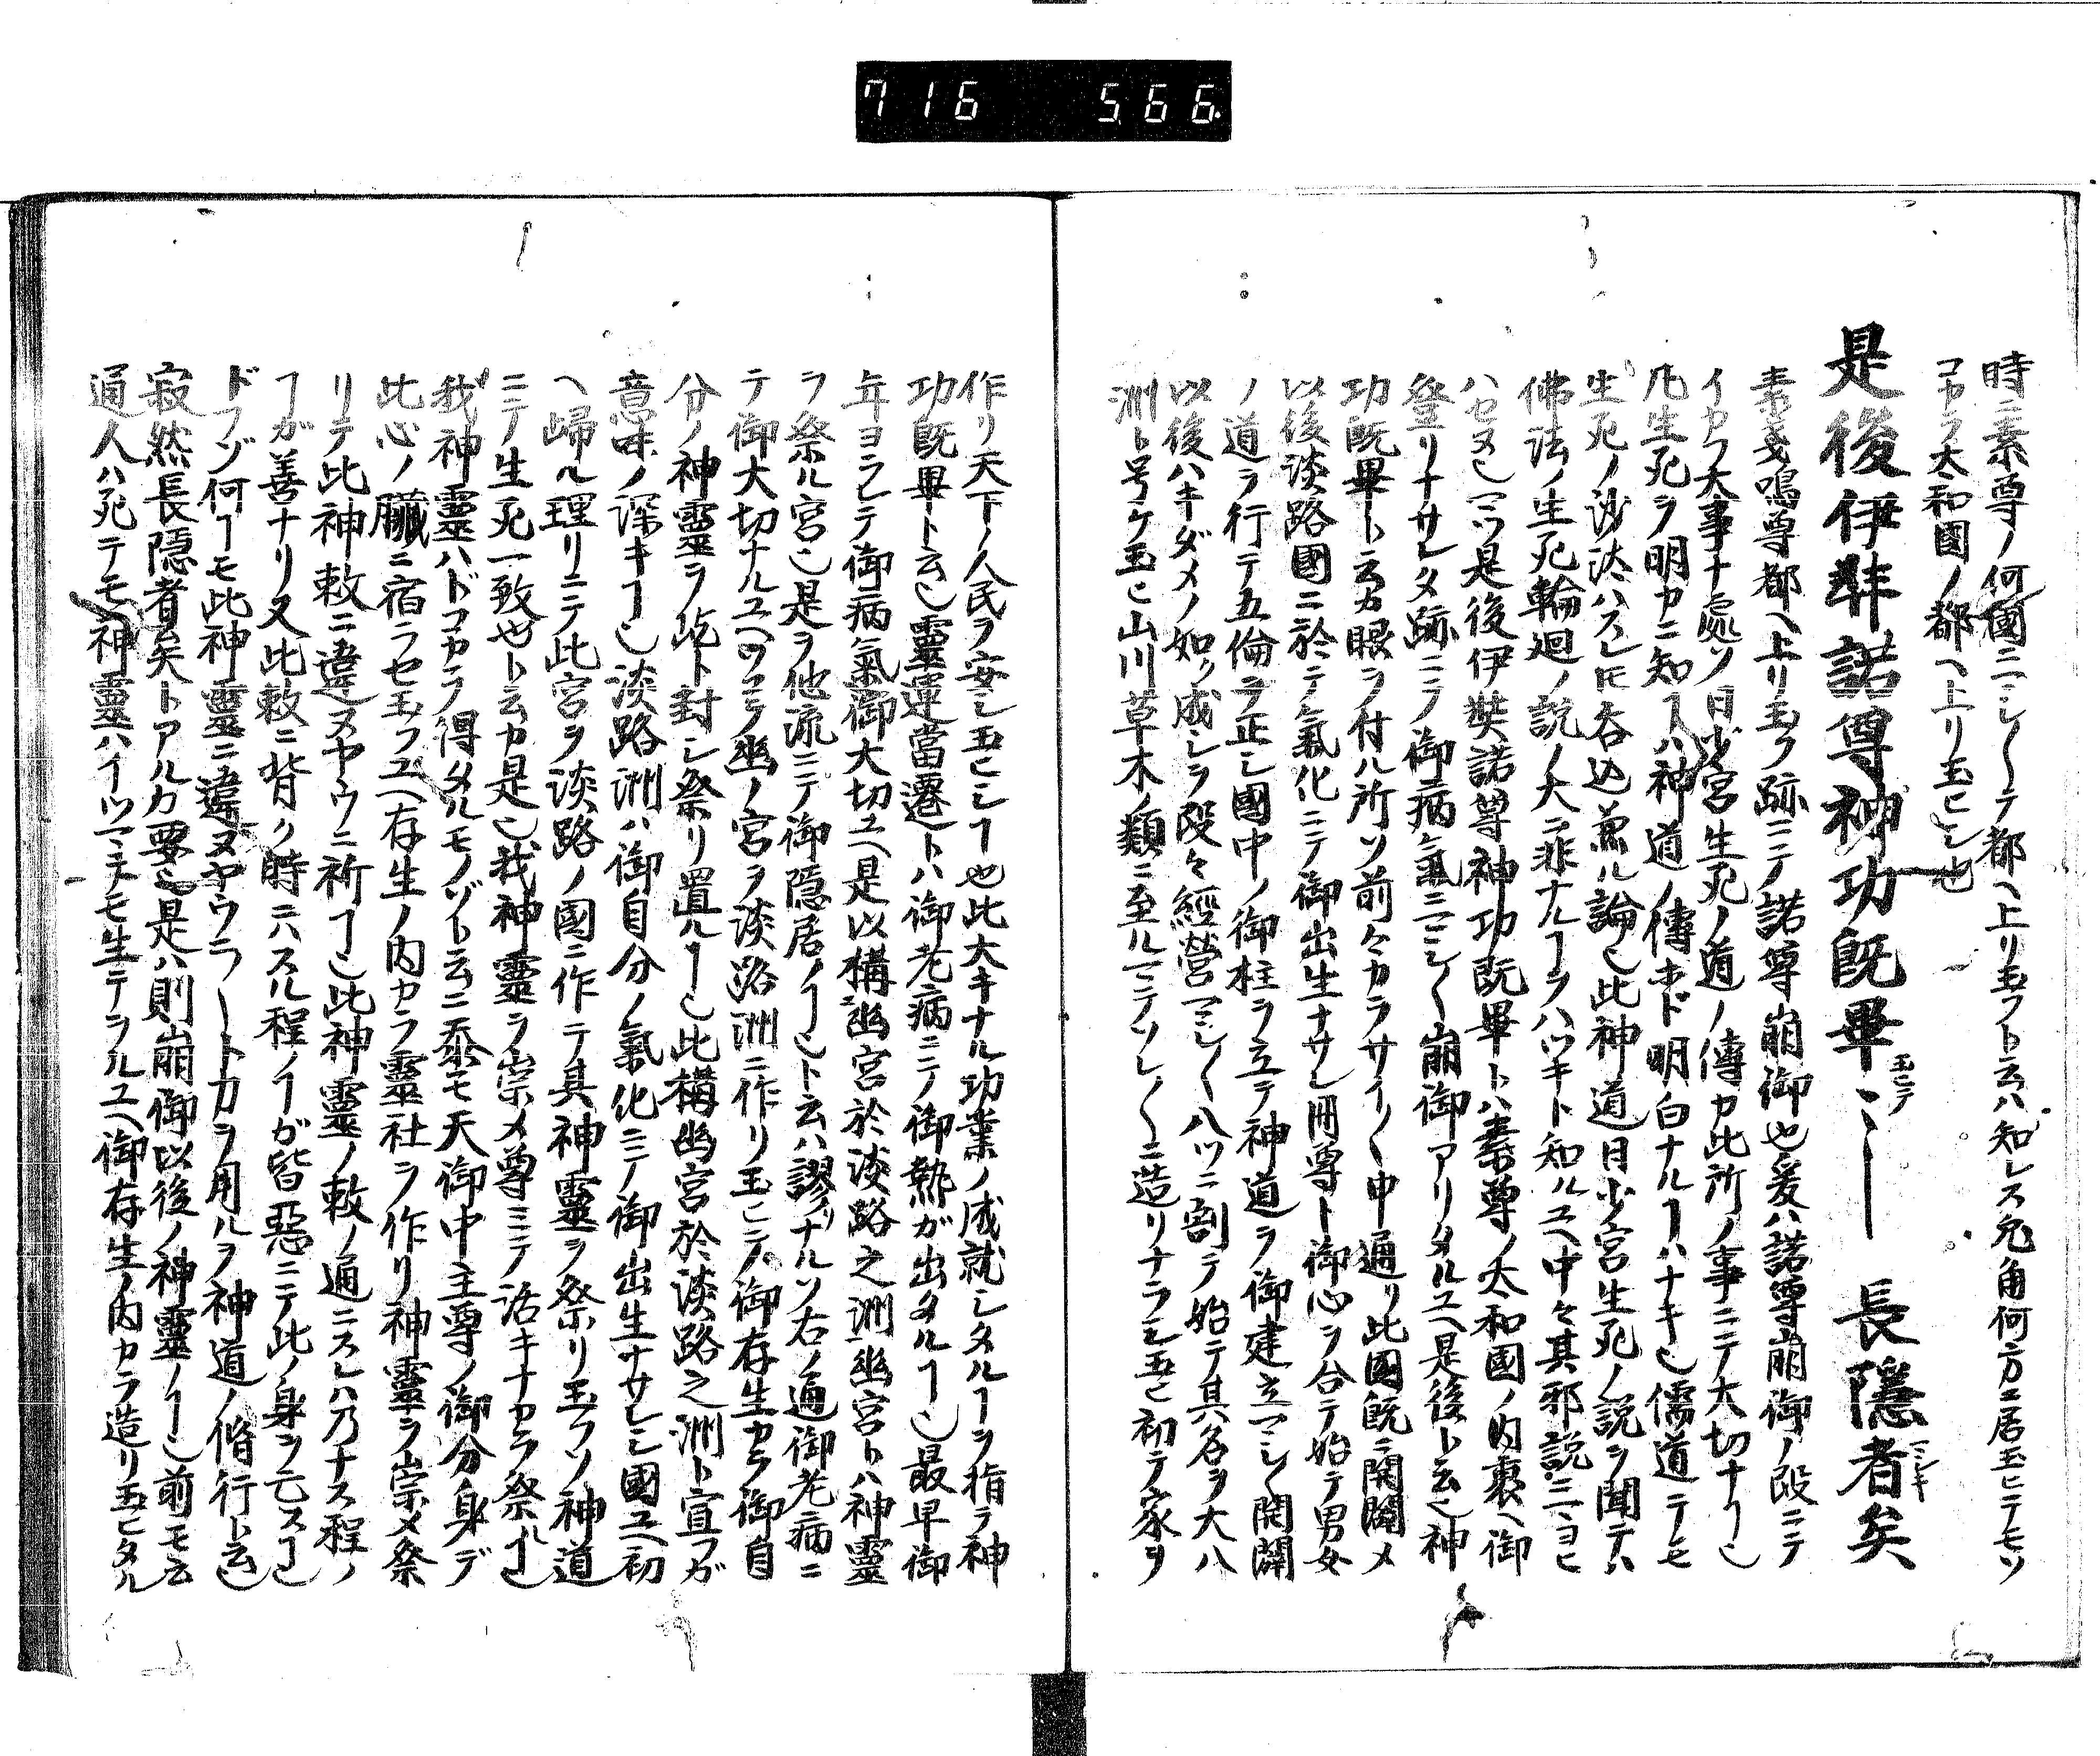 716 566
時ニ素尊ノ何國ニマシ〱テ都ヘ上リ玉フト云ハ知レス兔角何方ニ居玉ヒテモソ
コカラ大和國ノ都ヘ上リ玉ヒシ也
是後伊弉諾尊神功既畢玉ヒテ 長隱者マシキ矣
素戔嗚尊都ヘ上リ玉フ跡ニテ諾尊崩御也爰ハ諾尊崩御ノ段ニテ
イカフ大事ナ處ソ日少宮生死ノ道ノ傳カ此所ノ事ニテ大切ナヿ也
凡生死ヲ明カニ知ヿハ神道ノ傳ホド明白ナルヿハナキ也儒道テモ
生死ノ沙汰ハスレ𪜈呑込兼ル論也此神道日少宮生死ノ說ヲ聞テハ
佛法ノ生死輪廻ノ說ノ大ニ非ナルヿヲハツキト知ルユヘ中々其邪說ニヨヒ
ハセヌ也マツ是後伊奘諾尊神功既畢トハ素尊ノ大和國ノ內裏ヘ御
登リナサレタ跡ニテ御病氣ニマシ〱崩御アリタルユヘ是後ト云也神
功既畢ト云カ眼ヲ付ル所ソ前々カラサイ〱申通リ此國既ニ開闢メ
以後淡路國ニ於テ氣化ニテ御出生ナサレ冊尊ト御心ヲ合テ始テ男女
ノ道ヲ行テ五倫ヲ正シ國中ノ御柱ヲ立テ神道ヲ御建立マシ〱開闢
以後ハキダメノ如ク成シヲ段々經營マシ〱八ツニ割テ始テ其名ヲ大八
洲ト号ケ玉ヒ山川草木ノ類ニ至ルマテソレ〱ニ造リナラシ玉ヒ初テ家ヲ
作リ天下ノ人民ヲ安シ玉ヒシヿ也此大キナル功業ノ成就シタルヿヲ指テ神
功既畢ト云也靈運當遷トハ御老病ニテ御熱ガ出タルヿ也最早御
年ヨラレテ御病氣御大切ユヘ是以構幽宮於淡路之洲幽宮トハ神靈
ヲ祭ル宮也是ヲ他流ニテ御隱居ノヿ也ト云ハ謬ナルソ右ノ通御老病ニ
テ御大切ナルユヘカラ幽ノ宮ヲ淡路洲ニ作リ玉ヒテ御存生カラ御自
分ノ神靈ヲ屹ト封シ祭リ置ルヿ也此構幽宮於淡路之洲ト宣フガ
意味ノ深キヿ也淡路洲ハ御自分ノ氣化ニテ御出生ナサレシ國ユヘ初
ヘ歸ル理リニテ此宮ヲ淡路ノ國ニ作テ其神靈ヲ祭リ玉フソ神道
ニテ生死一致也ト云カ是也我神靈ヲ崇メ尊ミテ活キナカラ祭ルヿ也
我神靈ハドコカラ得タルモノゾト云ニ忝モ天御中主尊ノ御分身デ
此心ノ臟ニ宿ラセ玉フユヘ存生ノ內カラ靈社ヲ作リ神靈ヲ崇メ祭
リテ此神敕ニ違ヌヤウニ祈ヿ也此神靈ノ敕ノ通ニスレハ乃ナス程ノ
ヿガ善ナリ又此敕ニ背ク時ニハスル程ノヿガ皆惡ニテ此ノ身ヲ亡スヿ也
ドフゾ何ヿモ此神靈ニ違ヌヤウニート力ヲ用ルヲ神道ノ脩行ト云也
寂然長隱者矣トアルカ要也是ハ則崩御以後ノ神靈ノヿ也前モ云
通人ハ死テモ神靈ハイツマテモ生テヲルユヘ御存生ノ內カラ造リ玉ヒタル